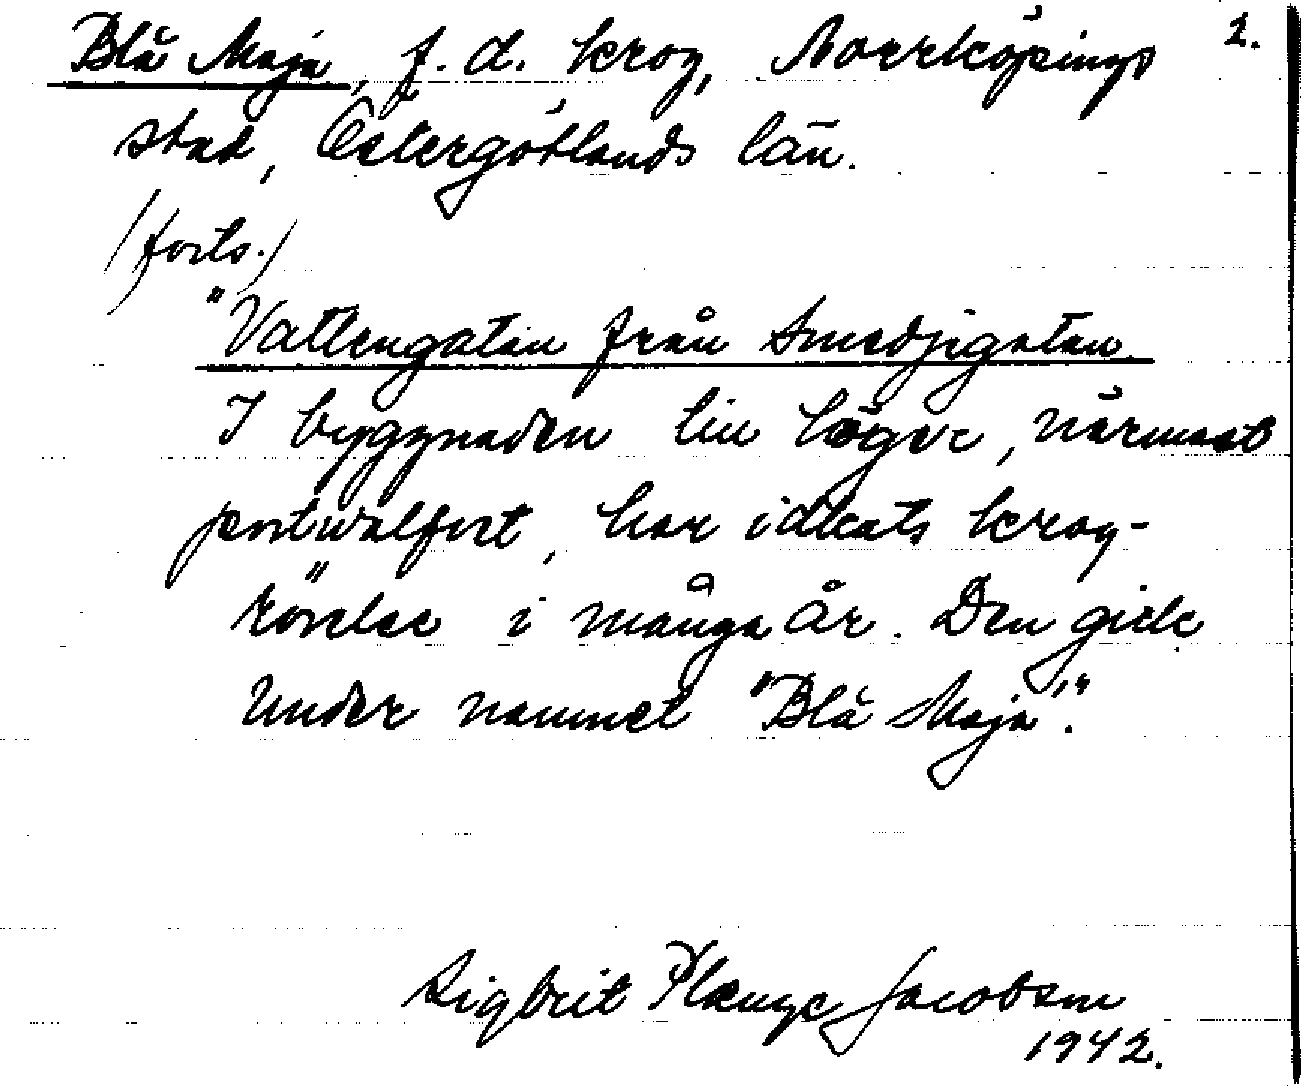 Blå Maja, f.d. krog, Norrköpings 2.
stad, Östergötlands län.
/forts./
"Vattengatan från Smedjegatan
I byggnaden till höger, närmast
portvalfvet, har idkats krog-
rörelse i många år. Den gick
under namnet "Blå Maja".
Sigbrit Plænge Jacobson
1942.